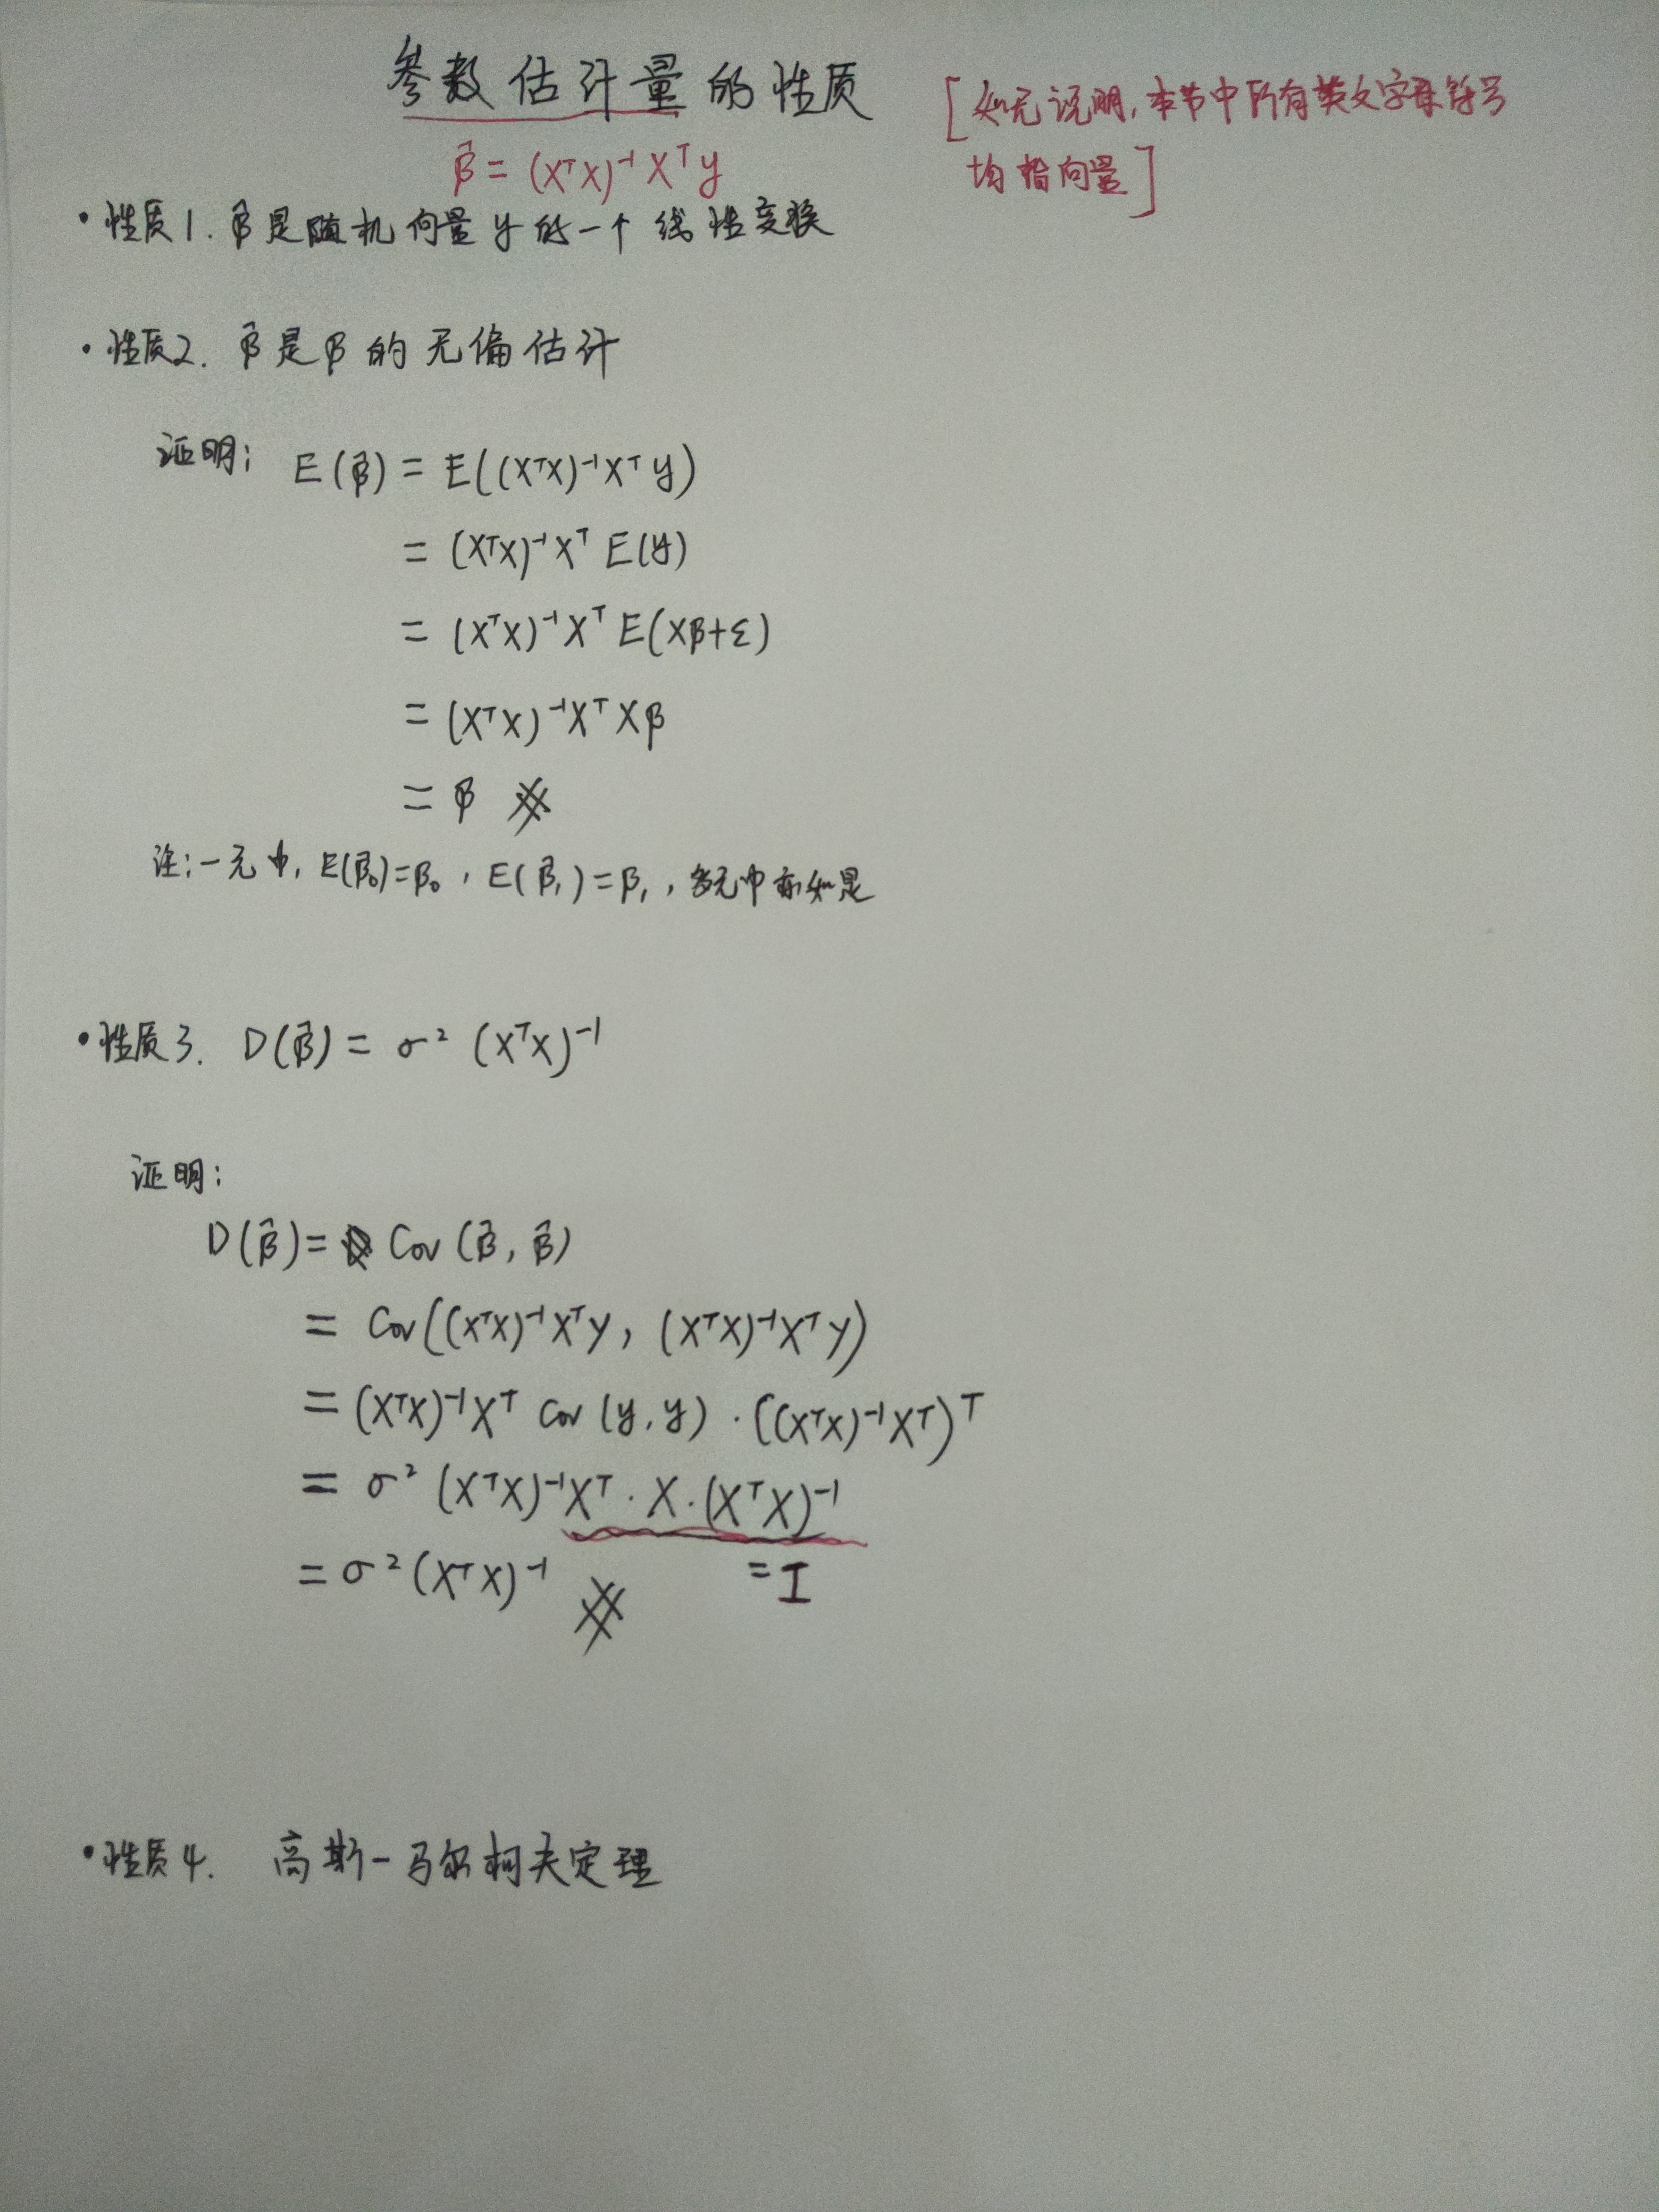 参数估计量的性质
[如无说明,本节中所有英文字母符号
均指向量]
β̂ = (XᵀX)⁻¹XᵀY
• 性质1. β̂是随机向量y的一个线性变换
• 性质2. β̂是β的无偏估计
证明: E(β̂) = E((XᵀX)⁻¹Xᵀy)
= (XᵀX)⁻¹Xᵀ E(y)
= (XᵀX)⁻¹Xᵀ E(Xβ+ε)
= (XᵀX)⁻¹XᵀXβ
= β #
注:一元中, E(β̂₀)=β₀, E(β̂₁)=β₁, 多元中亦如是
• 性质3. D(β̂) = σ² (XᵀX)⁻¹
证明:
D(β̂) = Cov(β̂, β̂)
= Cov((XᵀX)⁻¹XᵀY, (XᵀX)⁻¹XᵀY)
= (XᵀX)⁻¹Xᵀ Cov(y,y)·((XᵀX)⁻¹Xᵀ)ᵀ
= σ² (XᵀX)⁻¹Xᵀ·X·(XᵀX)⁻¹
= σ²(XᵀX)⁻¹ # = I
• 性质4. 高斯-马尔柯夫定理